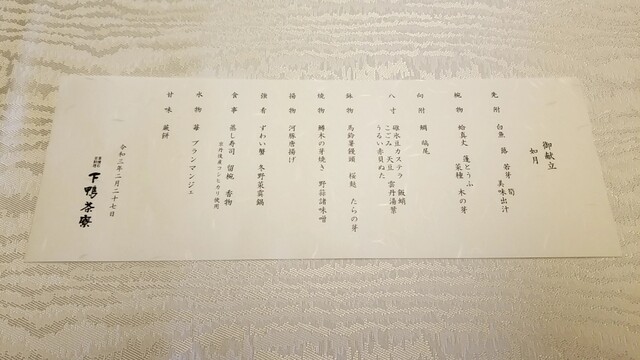 御献立
如月
先附 白魚 蕗 若芽 筍 美味出汁
椀物 蛤真丈 蓬とうふ 菜種 木の芽
向附 鯛 縞尾
八寸 碓氷豆カステラ 飯蛸
こごみ 天豆 雲丹湯葉
うるい赤貝ぬた
鉢物 馬鈴薯饅頭 桜麺 たらの芽
焼物 鰆木の芽焼き 野蒜諸味噌
揚物 河豚唐揚げ
強肴 ずわい蟹 冬野菜霙鍋
食事 蒸し寿司 留椀 香物
京丹後産コシヒカリ使用
水物 苺 ブランマンジェ
甘味 蕨餅
令和三年二月二十七日
下鴨茶寮